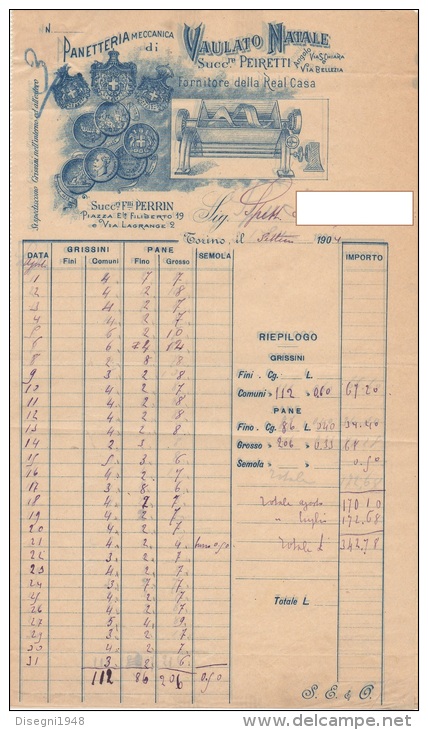 N.
PANETTERIA MECCANICA
di
VAULATO NATALE
SUCC.RE PEIRETTI
Angolo VIA S. CHIARA
e VIA BELLEZIA
Fornitore della Real Casa
Si spediscono Grissini nell'interno ed all'estero
SUCC.RE F.LLI PERRIN
PIAZZA E.LE FILIBERTO 19
e VIA LAGRANGE 2
Sig. Spett
Torino, il Settem 1904
DATA GRISSINI PANE SEMOLA IMPORTO
Fini Comuni Fino Grosso
1 4 7 7
2 4 2 8
3 4 2 7
4 4 2 7
5 5 2 10
6 6 24 14
8 2 8 8
9 3 2 8
10 4 2 17
11 4 2 8
12 4 2 8
13 4 2 8
14 2 3
15 5 3 6
16 4 2 7
17 3 8 6
18 4 2 7
19 4 2 7
20 4 2 7
21 4 2 9 0.50
22 3 2 6
23 4 2 7
24 3 7 7
25 4 2 7
26 4 2 7
27 5 4 9
29 3 2 7
30 4 2 7
31 3 2 6
112 86 206 0.50
RIEPILOGO
GRISSINI
Fini Cg. L.
Comuni » 112 » 0.60 67.20
PANE
Fino Cg. 86 L. 0.40 34.40
Grosso » 206 » 0.33 68
Semola » » 0.50
Totale
Totale agosto 170 10
" luglio 172.68
Totale L. 342.78
Totale L.
S. E. & O.
Disegni1948
www.delcampe.net